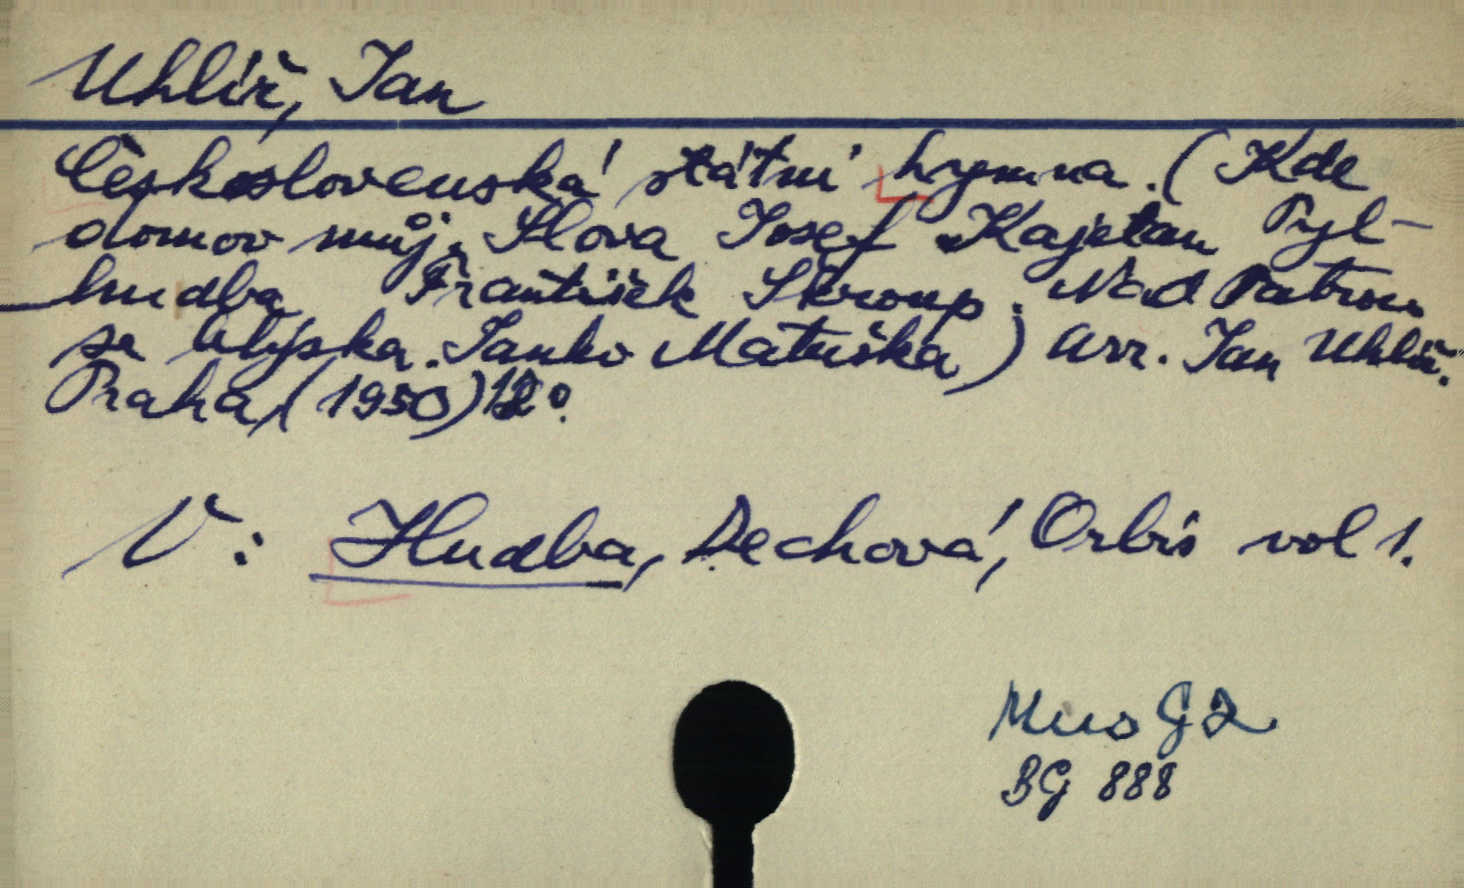 Uhlíř, Jan
Československá státní hymna. (Kde
domov můj. Slova Josef Kajetan Tyl -
hudba František Škroup. Nad Tatrou
sa blýska. Janko Matuška) Arr. Jan Uhlíř.
Praha, (1950) 12°.
V: Hudba, Dechová, Orbis vol 1.
Mus G2
BG 888